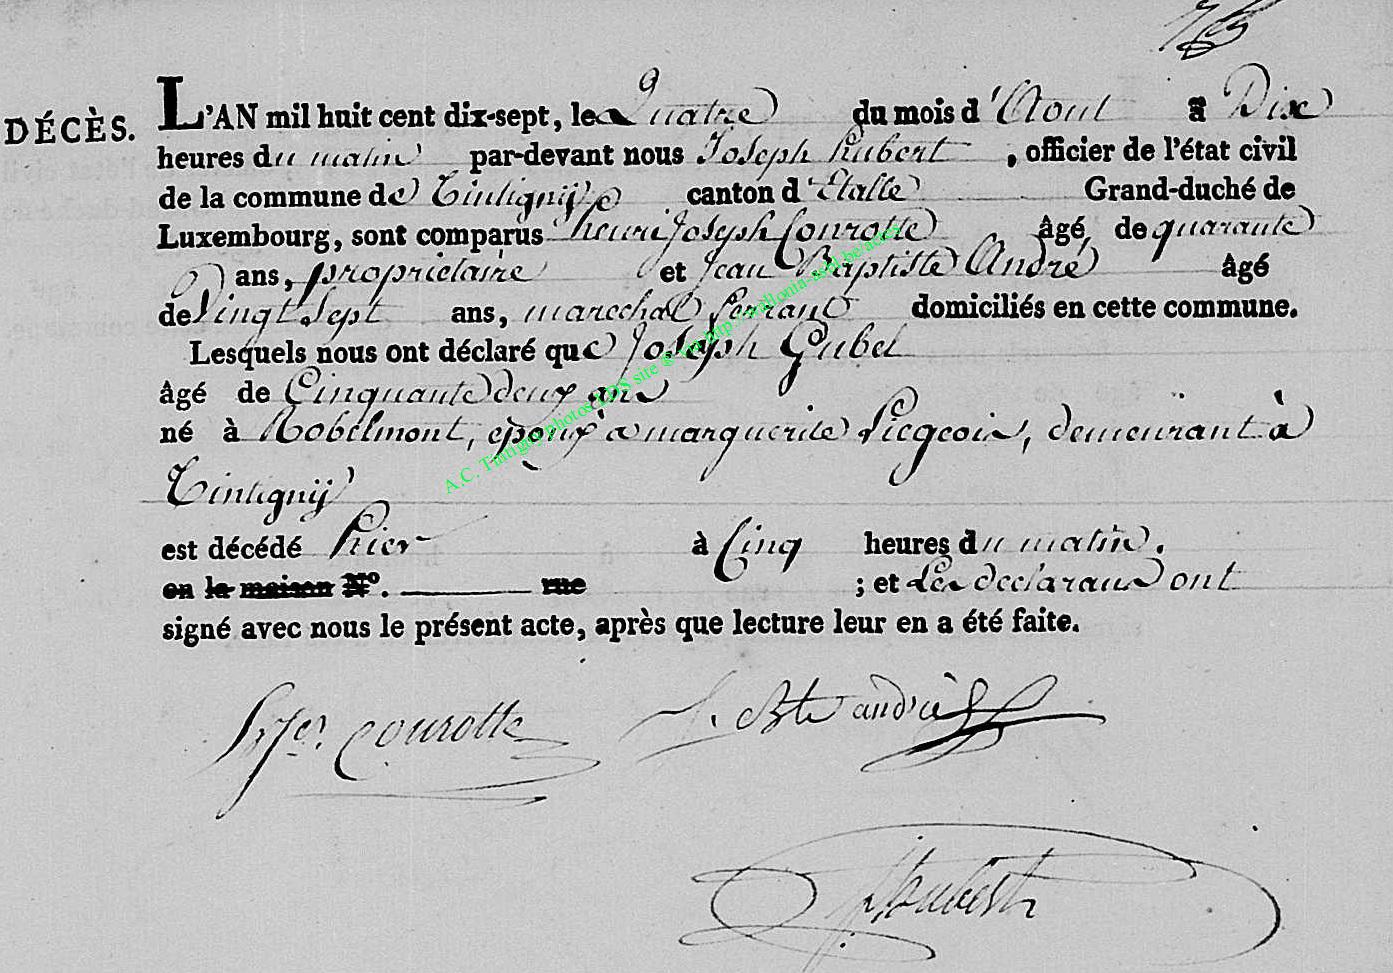 DÉCÈS.
L'AN mil huit cent dix-sept, le Quatre du mois d'Aout à Dix
heures du matin par-devant nous Joseph hubert, officier de l'état civil
de la commune de Tintignÿ canton d'Etalle Grand-duché de
Luxembourg, sont comparus henri Joseph Courotte âgé, de quarante
ans, propriétaire et Jean Baptiste André âgé
de Vingt Sept ans, marechal ferrant domiciliés en cette commune.
Lesquels nous ont déclaré que Joseph Gubel
âgé de Cinquante deux ans
né à Robelmont, epoux a marguerite Liegeois, demeurant à
Tintignÿ
est décédé hier à Cinq heures du matin.
en la maison N°. rue ; et Les declarans ont
signé avec nous le présent acte, après que lecture leur en a été faite.
Courotte J. Bte andré
hubert
A.C. Tintigny photos LDS site